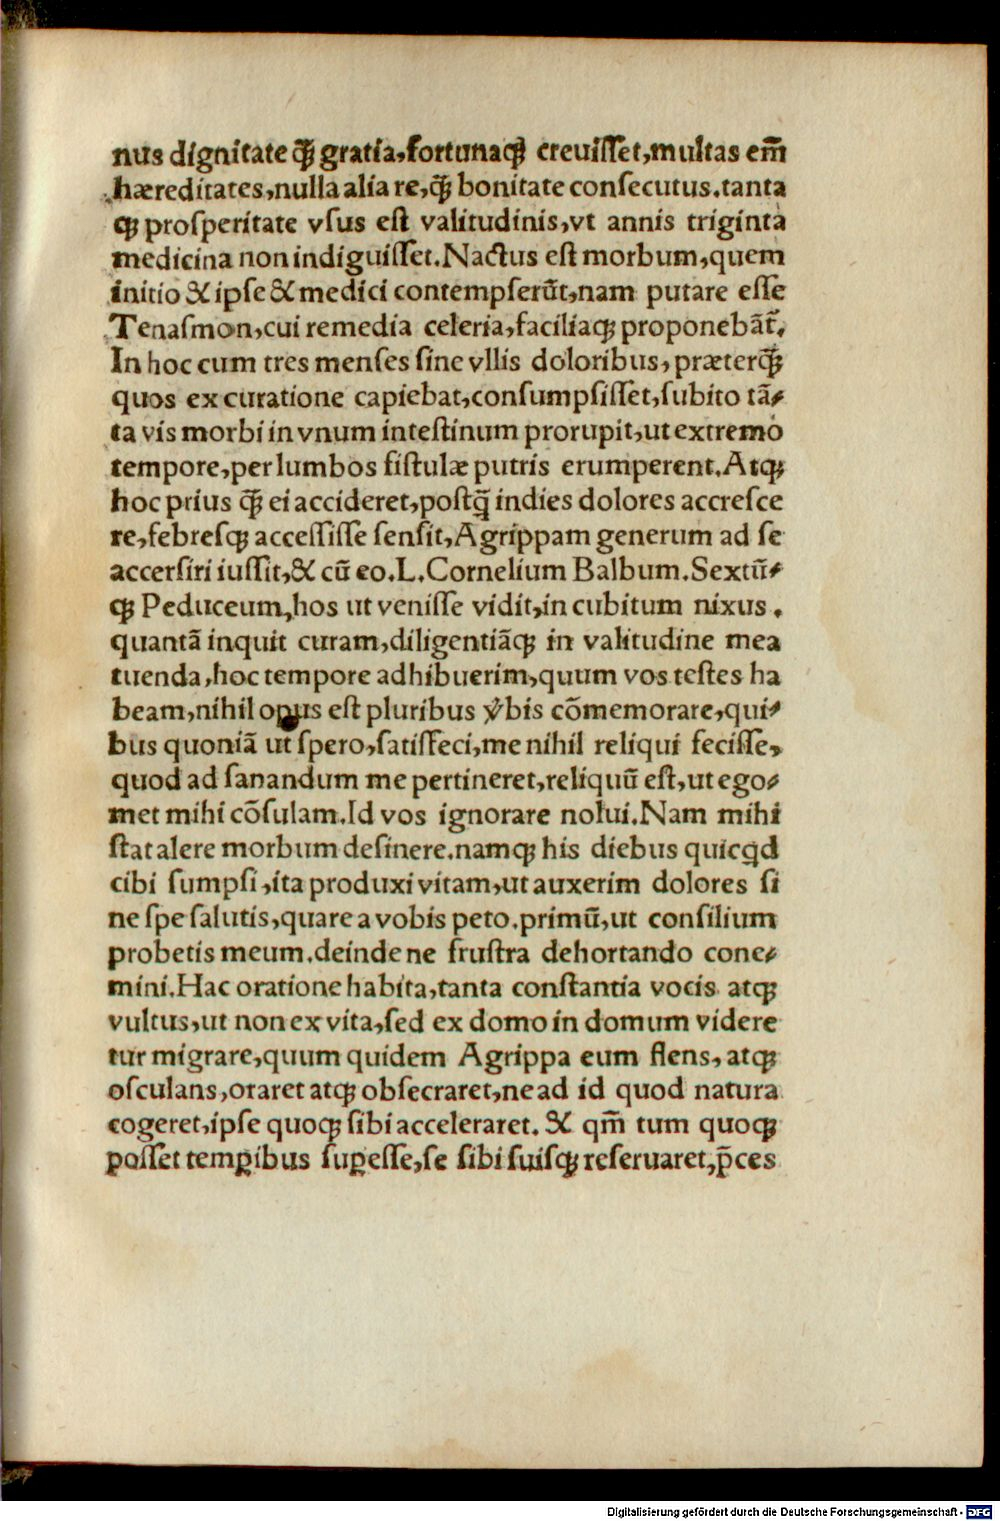 nus dignitate q̃ꝫ gratia,fortunaqꝫ creuiſſet,multas em̃
hæreditates,nulla alia re,q̃ꝫ bonitate conſecutus.tanta
qꝫ proſperitate vſus eſt valitudinis,vt annis triginta
medicina non indiguiſſet.Nactus eſt morbum,quem
initio & ipſe & medici contempſerũt,nam putare eſſe
Tenaſmon,cui remedia celeria,faciliaqꝫ proponebãt̃.
In hoc cum tres menſes ſine vllis doloribus,præterq̃ꝫ
quos ex curatione capiebat,conſumpſiſſet,ſubito tã⸗
ta vis morbi in vnum inteſtinum prorupit,ut extremo
tempore,per lumbos fiſtulæ putris erumperent.Atqꝫ
hoc prius q̃ꝫ ei accideret,poſtq̃ indies dolores accreſce
re,febreſqꝫ acceſſiſſe ſenſit,Agrippam generum ad ſe
accerſiri iuſſit,& cũ eo.L.Cornelium Balbum.Sextũ⸗
qꝫ Peduceum,hos ut veniſſe vidit,in cubitum nixus.
quantã inquit curam,diligentiãqꝫ in valitudine mea
tuenda,hoc tempore adhibuerim,quum vos teſtes ha
beam,nihil opus eſt pluribus v̓bis cõmemorare,qui⸗
bus quoniã ut ſpero,ſatiſfeci,me nihil reliqui feciſſe,
quod ad ſanandum me pertineret,reliquũ eſt,ut ego⸗
met mihi cõſulam.Id vos ignorare nolui.Nam mihi
ſtat alere morbum deſinere.namqꝫ his diebus quicq̇d
cibi ſumpſi,ita produxi vitam,ut auxerim dolores ſi
ne ſpe ſalutis,quare a vobis peto.primũ,ut conſilium
probetis meum.deinde ne fruſtra dehortando cone⸗
mini.Hac oratione habita,tanta conſtantia vocis atqꝫ
vultus,ut non ex vita,ſed ex domo in domum videre
tur migrare,quum quidem Agrippa eum flens,atqꝫ
oſculans,oraret atqꝫ obſecraret,ne ad id quod natura
cogeret,ipſe quoqꝫ ſibi acceleraret.& qm̃ tum quoqꝫ
poſſet temꝑibus ſuꝑeſſe,ſe ſibi ſuiſqꝫ reſeruaret,p̃ces
Digitalisierung gefördert durch die Deutsche Forschungsgemeinschaft - DFG